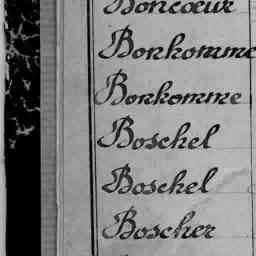 Boncœur
Bonhomme
Bonhomme
Boschel
Boschel
Boscher